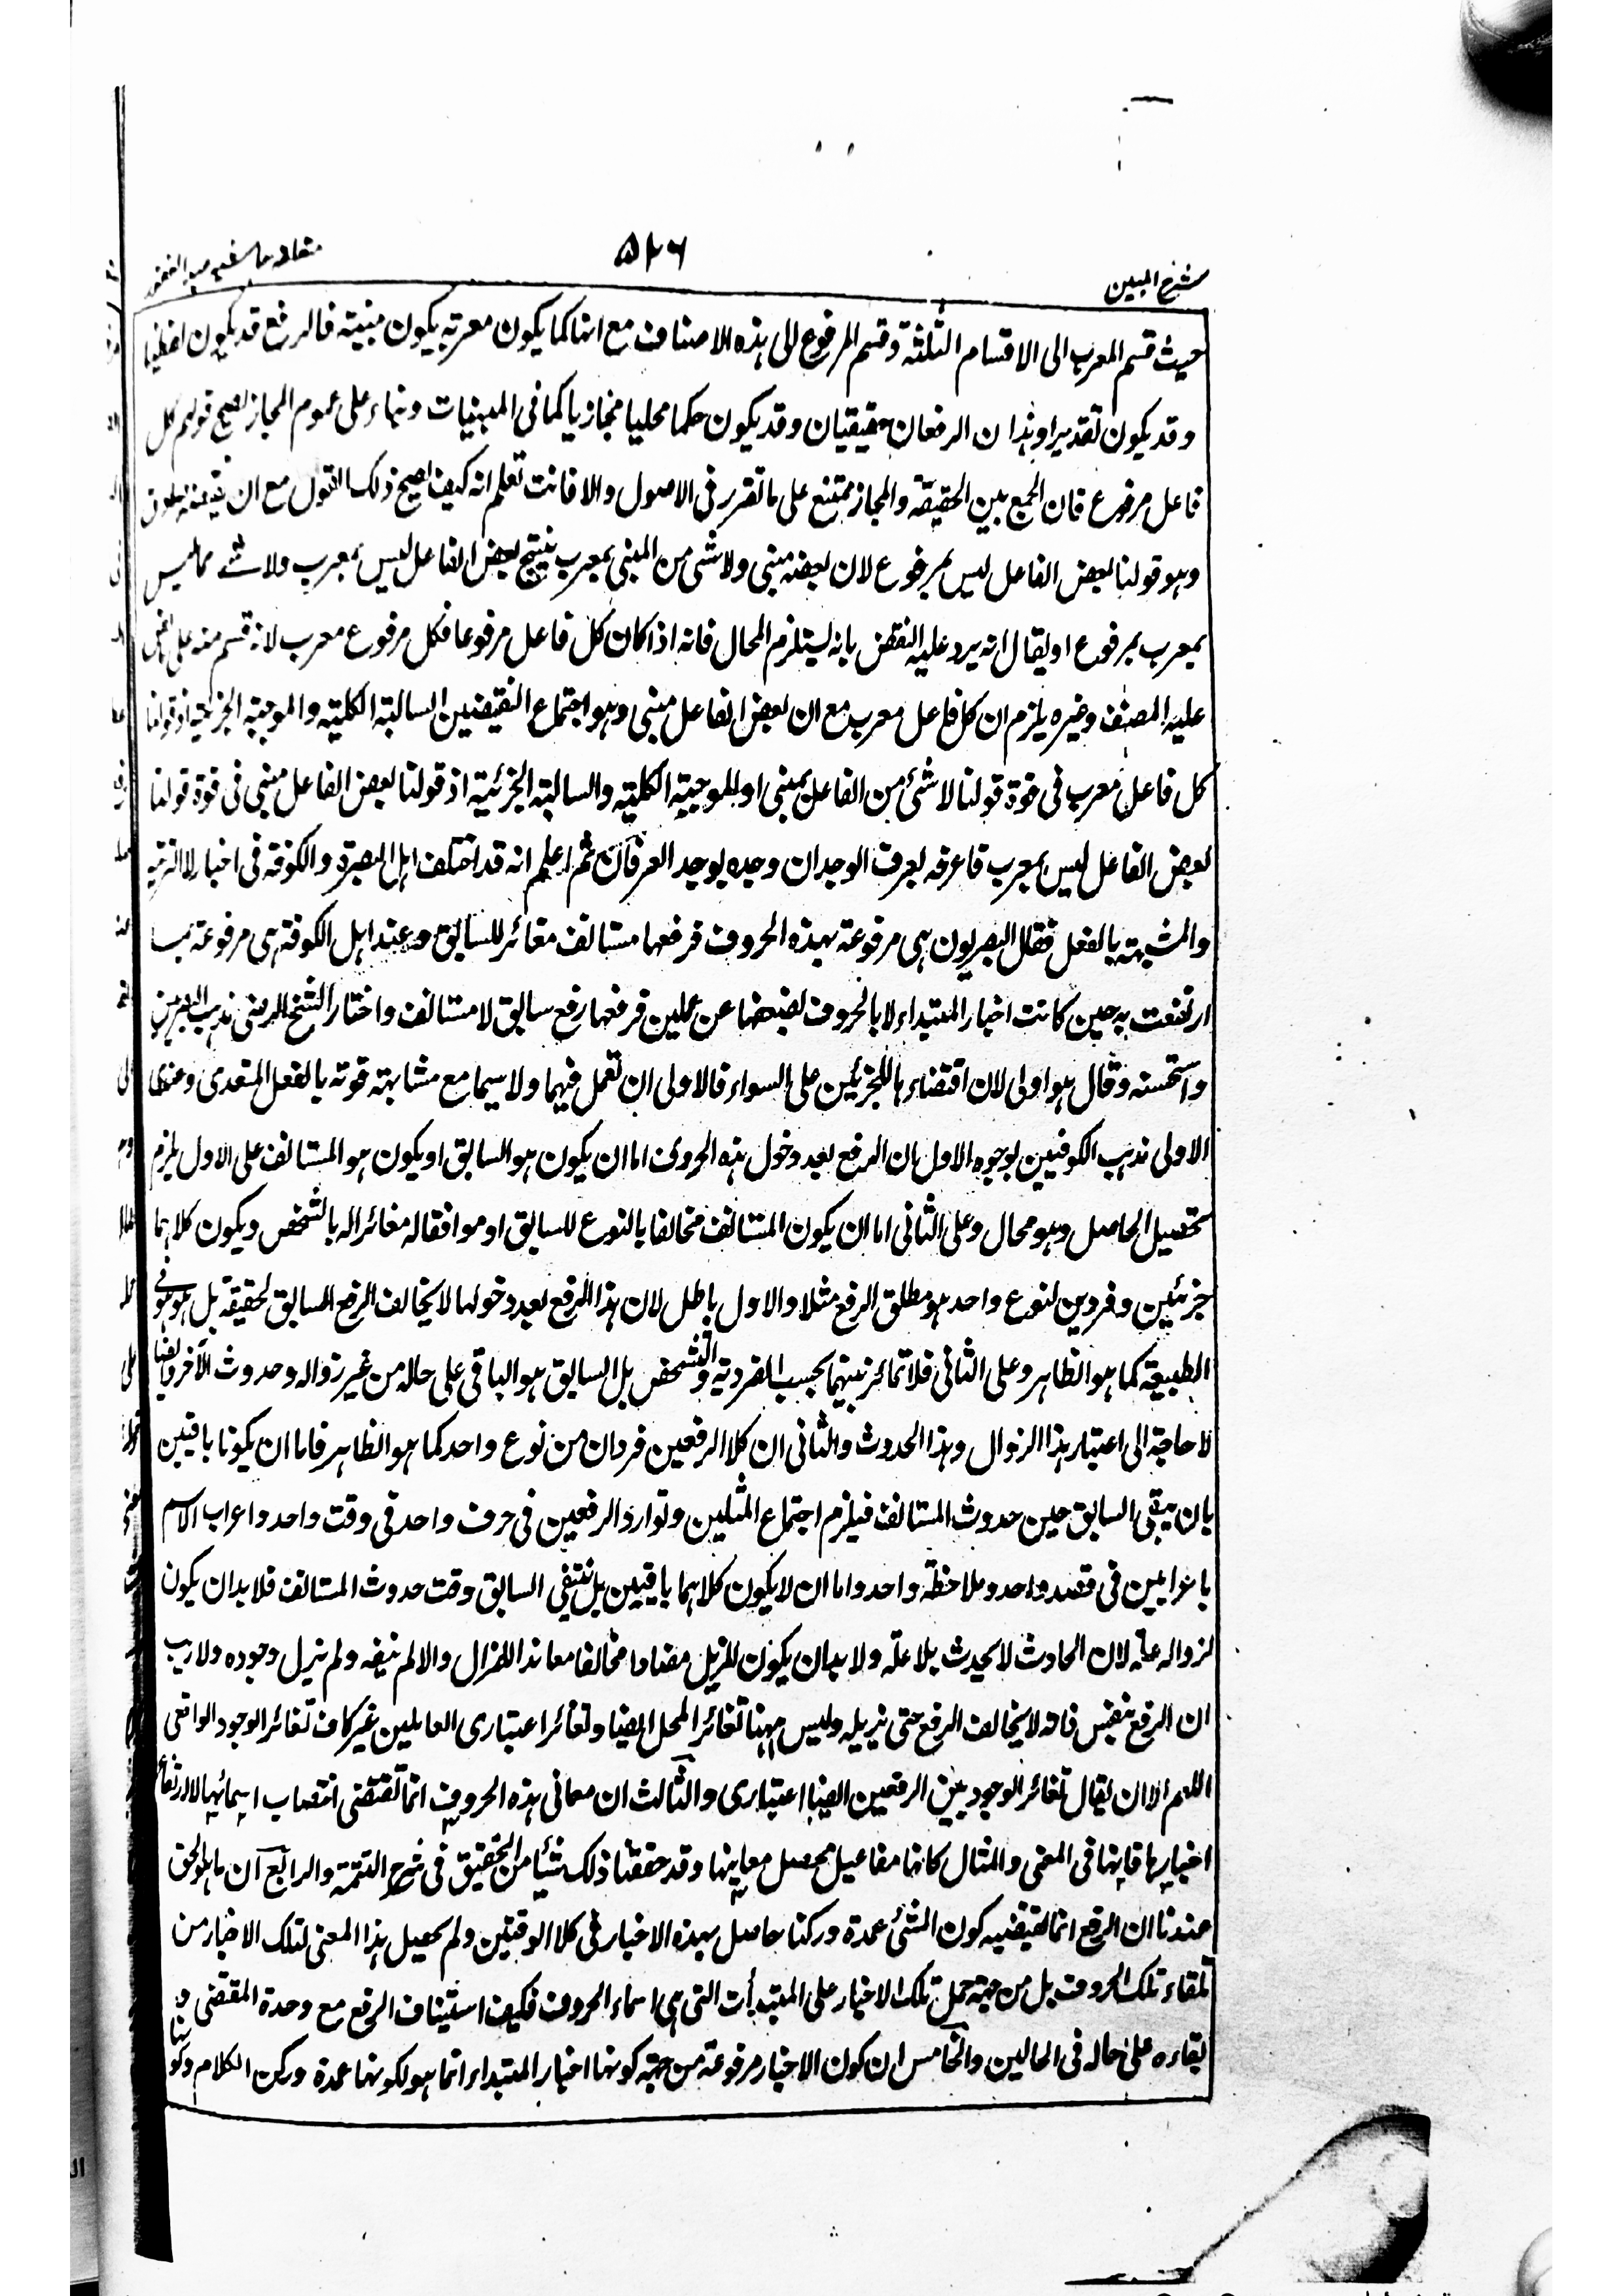 شرح المبين
۵۲۶
حيث قسم المعرب الى الاقسام الثلثة وقسم المرفوع الى هذه الاصناف مع انها كما يكون معربة يكون مبنية فالرفع قد يكون لفظيا
وقد يكون تقديرا وهذا ن الرفعان حقيقيان وقد يكون حكما محليا مجازيا كما فى المبنيات وبناء على عموم المجاز يصح قولهم كل
فاعل مرفوع فان الجمع بين الحقيقة والمجاز ممتنع على ما تقرر فى الاصول والا فانت تعلم انه كيف يصح ذلك القول مع ان نقيضه صادق
وهو قولنا بعض الفاعل ليس بمرفوع لان بعضه مبنى ولا شى من المبنى بمعرب ينتج بعض الفاعل ليس بمعرب ولا شے مما ليس
بمعرب بمرفوع او يقال انه يرد عليه النقض بانه يستلزم المحال فانه اذا كان كل فاعل مرفوعا فكل مرفوع معرب لانه قسم منه على
عليه المصنف وغيره يلزم ان كل فاعل معرب مع ان بعض الفاعل مبنى وهو اجتماع النقيضين السالبة الكلية والموجبة الجزئية اذ قولنا
كل فاعل معرب فى قوة قولنا لا شئ من الفاعل بمبنى او للموجبة الكلية والسالبة الجزئية اذ قولنا بعض الفاعل مبنى فى قوة قولنا
بعض الفاعل ليس بمعرب فاعرفه بعرف الوجدان وجده بوجد العرفان ثم اعلم انه قد اختلف اهل البصرة والكوفة فى اخبار لا التبرية
والمشبهة بالفعل فقال البصريون هى مرفوعة بهذه الحروف فرفعها مستانف مغائر للسابق وعند اهل الكوفة هى مرفوعة بما
ارتفعت به حين كانت اخبار المبتداء لا بالحروف لضعفها عن عملين فرفعها رفع سابق لا مستانف واختار الشيخ الرضى مذهب البصريين
واستحسنه وقال هو اولى لان اقتضاءها للجزئين على السواء فالاولى ان تعمل فيهما ولا سيما مع مشابهته قوته بالفعل المتعدى وعندى
الاولى مذهب الكوفيين بوجوه الاول ان الرفع بعد دخول هذه الحروف اما ان يكون هو السابق او يكون هو المستانف على الاول يلزم
تحصيل الحاصل وهو محال وعلى الثانى اما ان يكون المستانف مخالفا بالنوع للسابق او موافقا له مغائرا له بالشخص ويكون كلاهما
جزئيين وفردين لنوع واحد هو مطلق الرفع مثلا والاول باطل لان هذا الرفع بعد دخولها لا يخالف الرفع السابق لحقيقة بل هو هو فى
الطبيعة كما هو الظاهر وعلى الثانى فلا تمائز بينهما بحسب الفردية والتشخص بل السابق هو الباقى على حاله من غير زواله وحدوث الآخر وايضا
لا حاجة الى اعتبار هذا الزوال وهذا الحدوث والثانى ان كلا الرفعين فردان من نوع واحد كما هو الظاهر فاما ان يكونا باقيين
بان يبقى السابق حين حدوث المستانف فيلزم اجتماع المثلين وتوارد الرفعين فى حرف واحد فى وقت واحد واعراب الاسم
باعرابين فى قصد واحد وملاحظة واحد واما ان لا يكون كلاهما باقيين بل ينتفى السابق وقت حدوث المستانف فلا بد ان يكون
لزواله علة لان الحادث لا يحدث بلا علة ولا بد ان يكون للمزيل مضادا مخالفا معاندا للمزال والا لم ينفه ولم يزل وجوده ولا ريب
ان الرفع بنفس ذاته لا يخالف الرفع حتى يزيله وليس ههنا تغائر المحل ايضا وتغائر اعتبارى العاملين غير كاف تغائر الوجود الواقعى
اللهم الا ان يقال تغائر الوجود بين الرفعين ايضا اعتبارى والثالث ان معانى هذه الحروف انما تقتضى انتصاب اسمائها لا ارتفاع
اخبارها فانها فى المعنى والمثال كانها مفاعيل تحصل معانيها وقد حققنا ذلك شيئا من التحقيق فى شرح التتمة والرابع ان ما هو الحق
عندنا ان الرفع انما يقتضيه كون الشئ عمدة وركنا حاصل بهذه الاخبار فى كلا الوقتين ولم يحصل هذا المعنى لتلك الاخبار من
تلقاء تلك الحروف بل من جهة حمل تلك الاخبار على المبتدأت التى هى اسماء الحروف فكيف استيناف الرفع مع وحدة المقتضى و
بقاءه على حاله فى الحالين والخامس ان كون الاخبار مرفوعة من جهة كونها اخبار المبتداء انما هو لكونها عمدة وركن الكلام وكونها